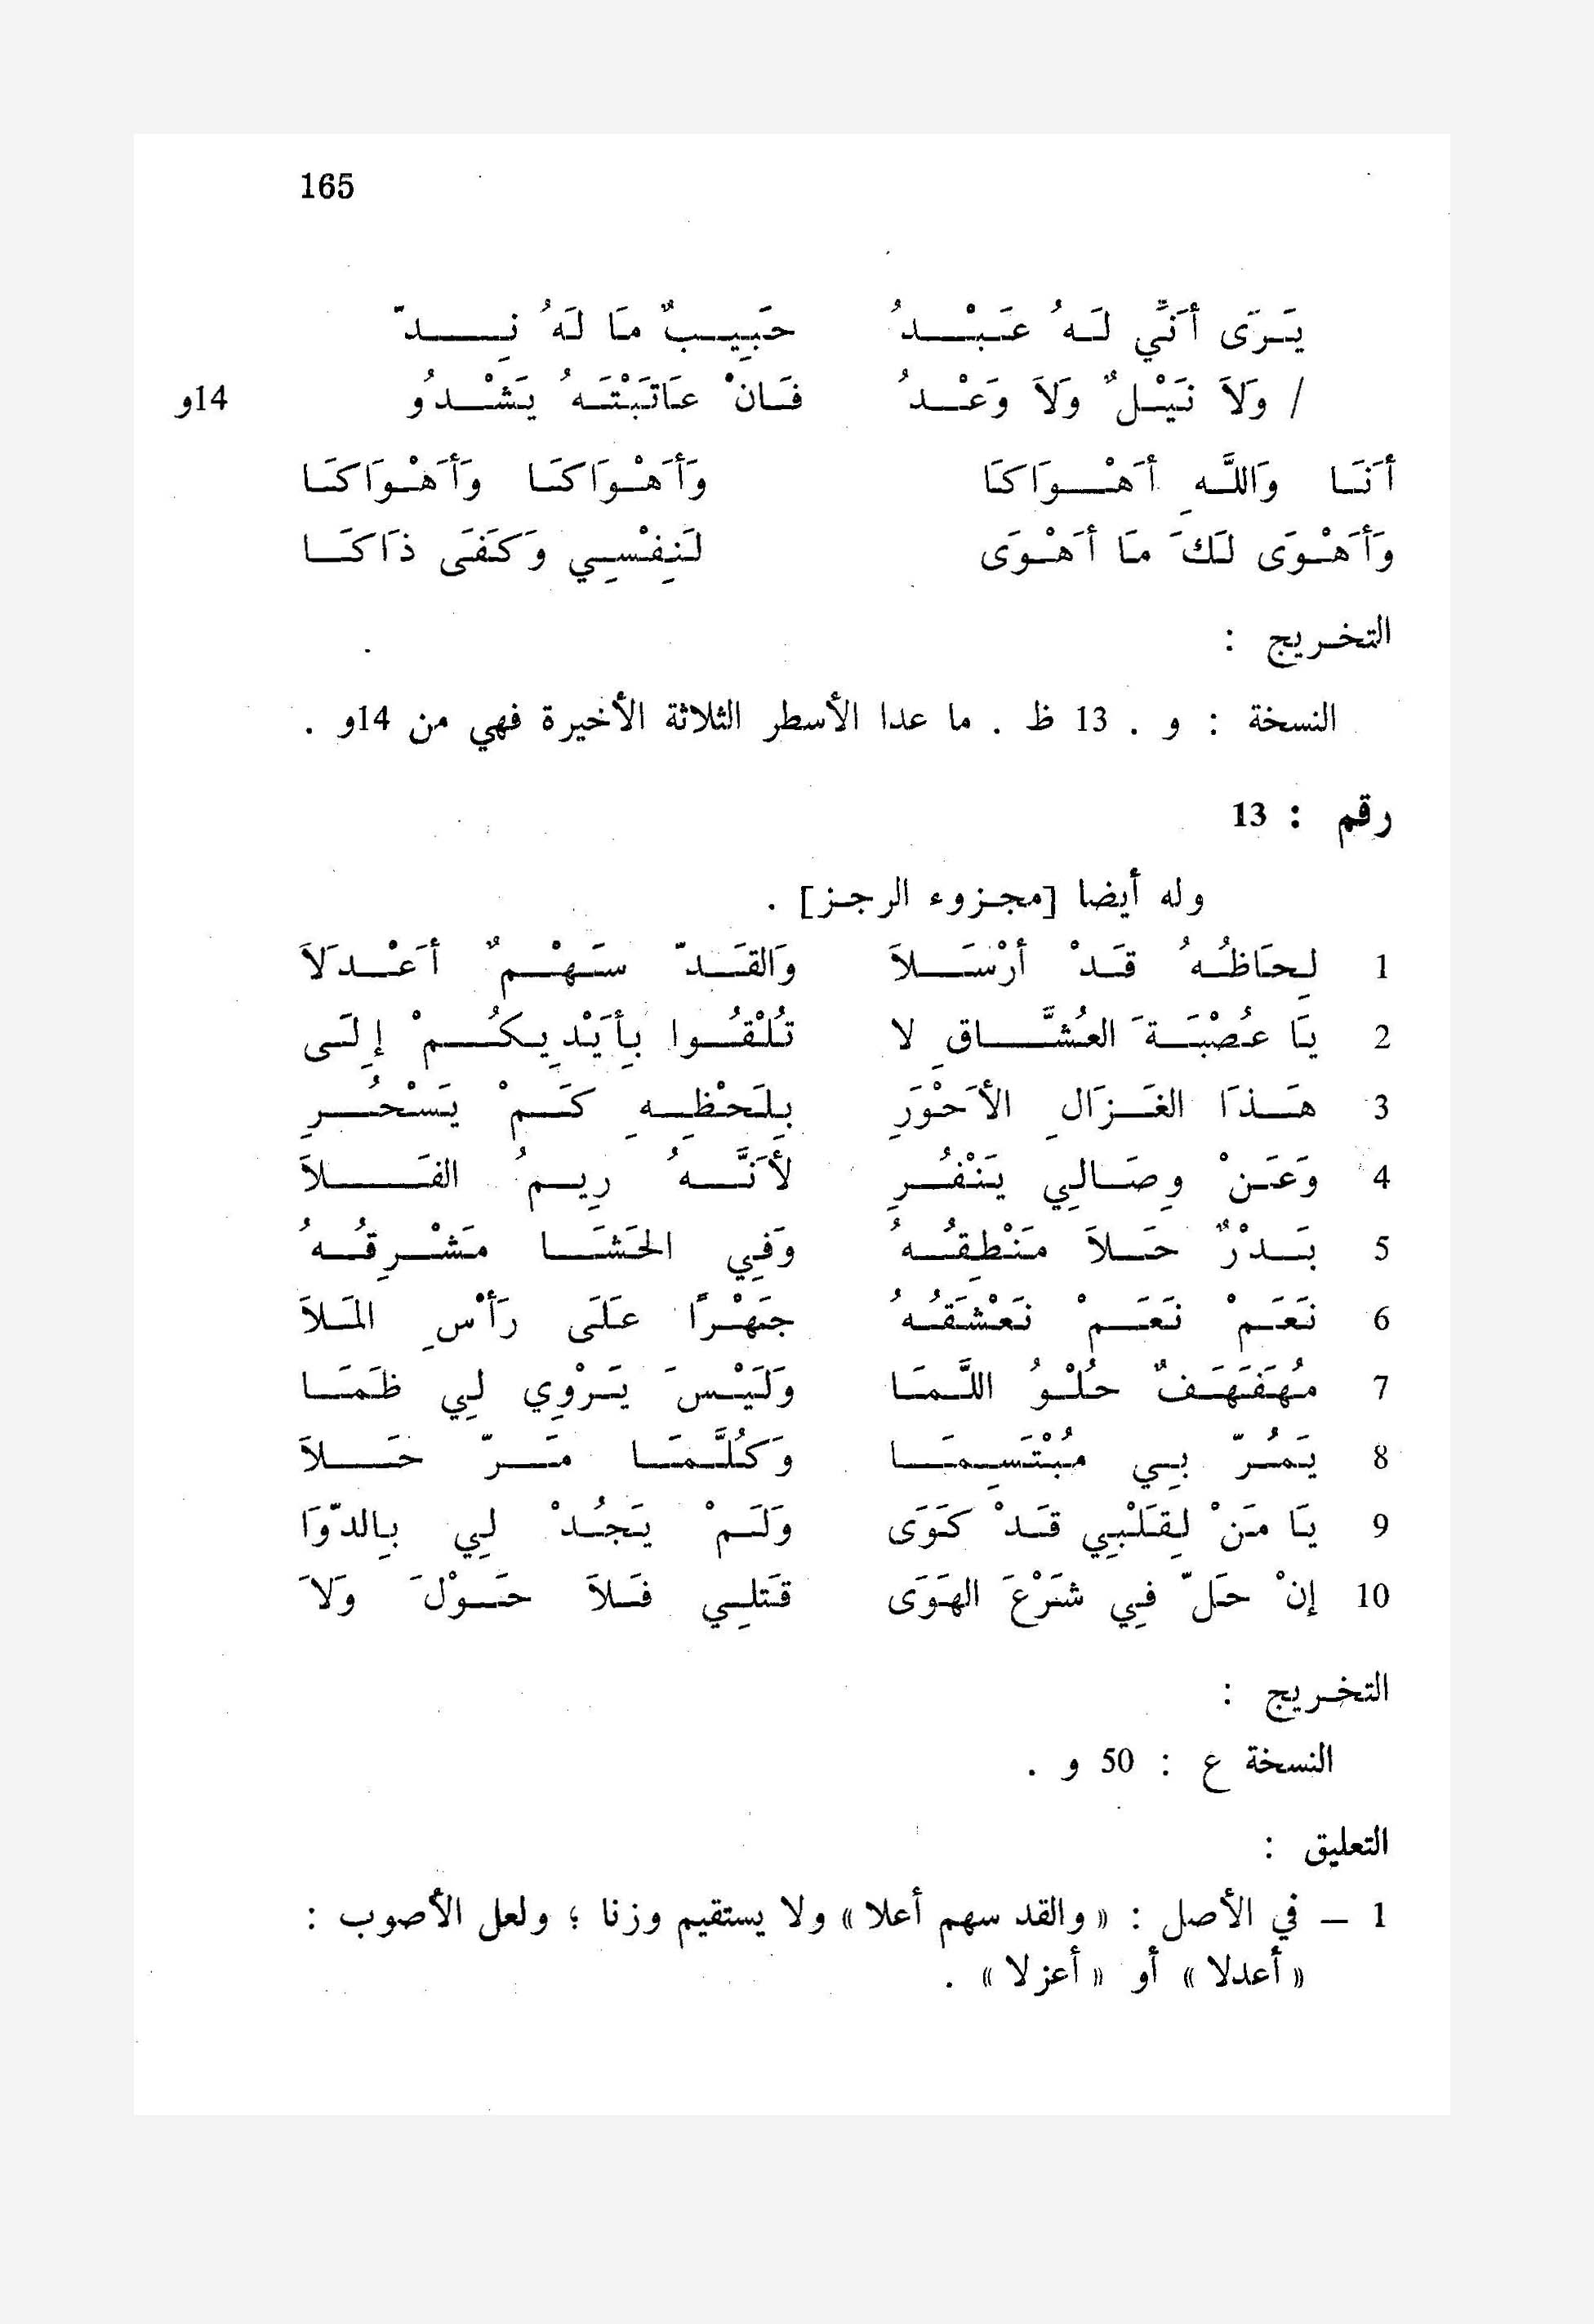 165
يَرَى أَنِّي لَهُ عَبْدُ حَبِيبٌ مَا لَهُ نِدّ
/ وَلاَ نَيْلٌ وَلاَ وَعْدُ فَانْ عَاتَبْتَهُ يَشْدُو 14و
أَنَا وَاللَّهِ أَهْوَاكَا وَأَهْوَاكَا وَأَهْوَاكَا
وَأَهْوَى لَكَ مَا أَهْوَى لَنِفْسِي وَكَفَى ذَاكَا
التخريج :
النسخة : و . 13 ظ . ما عدا الأسطر الثلاثة الأخيرة فهي من 14و .
رقم : 13
وله أيضا [مجزوء الرجز] .
1 لِحَاظُهُ قَدْ أَرْسَلاَ وَالقَدّ سَهْمٌ أَعْدَلاَ
2 يَا عُصْبَةَ العُشَّاقِ لا تُلْقُوا بِأَيْدِيكُمْ إِلَى
3 هَذَا الغَزَالِ الأَحْوَرِ بِلَحْظِهِ كَمْ يَسْحُرِ
4 وَعَنْ وِصَالِي يَنْفُرِ لأَنَّهُ رِيمُ الفَلاَ
5 بَدْرٌ حَلاَ مَنْطِقُهُ وَفِي الحَشَا مَشْرِقُهُ
6 نَعَمْ نَعَمْ نَعْشَقُهُ جَهْرًا عَلَى رَأْسِ المَلاَ
7 مُهَفْهَفٌ حُلْوُ اللَّمَا وَلَيْسَ يَرْوِي لِي ظَمَا
8 يَمُرّ بِي مُبْتَسِمَا وَكُلَّمَا مَرّ حَلاَ
9 يَا مَنْ لِقَلْبِي قَدْ كَوَى وَلَمْ يَجُدْ لِي بِالدّوَا
10 إنْ حَلّ فِي شَرْعَ الهَوَى قَتلِي فَلاَ حَوْلَ وَلاَ
التخريج :
النسخة ع : 50 و .
التعليق :
1 – في الأصل : « والقد سهم أعلا » ولا يستقيم وزنا ؛ ولعل الأصوب :
« أعدلا » أو « أعزلا » .